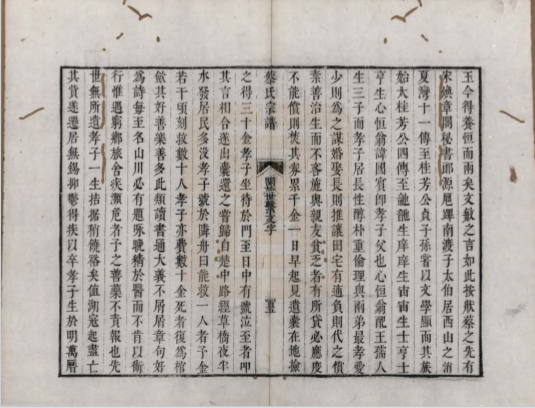 王令得養恒而兩矣文敏之言如此按狀蔡之先有
宋煥章閣秘書郎源扈蹕南渡子太伯居西山之消
夏灣十一傳至桂芳公貞子孫嘗以文學顯而其族
始大桂芳公四傳至 生庠庠生宙宙生士亨士
亨生心恒翁諱國賓卽孝子父也心恒翁配王孺人
生三子而孝子居長性醇朴重倫理與兩弟最孝愛
少則爲之謀婚娶長則推讓田宅有逋負則代之償
素善治生而不吝施與親友貧乏者有所貸必應度
不能償則焚其券累千金一日早起見遺橐在地撿
蔡氏宗譜
之得三十金孝子坐待於門至日中有號泣至者叩
其言相合遂出橐還之嘗歸自楚中路經草橋夜半
水發居民多沒孝子號於隣舟曰能救一人者予金
若干頃刻救數十人孝子亦費數十金死者復爲棺
斂其好善樂善多此類讀書通大義不屑屑章句好
爲詩每至名山川必有題咏晚精於醫而不肯以術
行惟遇窮鄉旅舍疾瀕危者予之善藥不責報也先
世無所遺孝子一生拮据稍饒裕矣値湖寇起盡亡
其貲遂還居無錫抑鬱得疾以卒孝子生於明萬曆